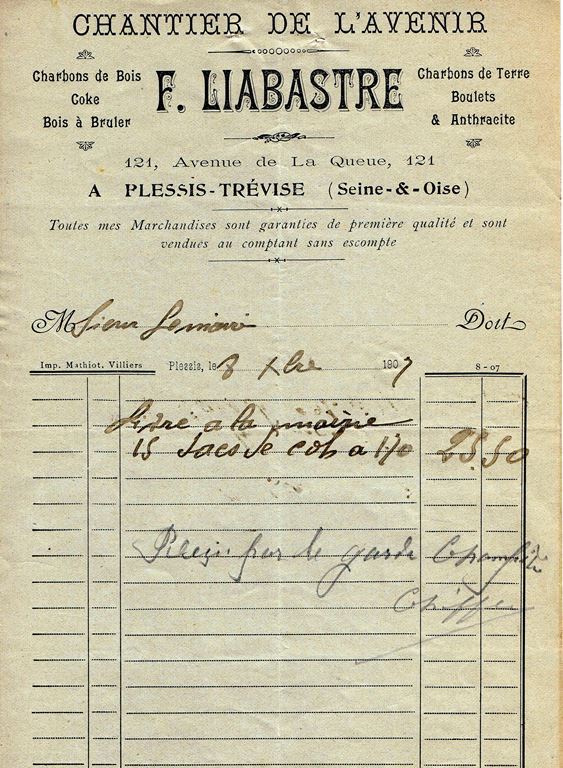 CHANTIER DE L'AVENIR
Charbons de Bois
Coke
Bois à Bruler
F. LIABASTRE
Charbons de Terre
Boulets
& Anthracite
121, Avenue de La Queue, 121
A PLESSIS-TRÉVISE (Seine-&-Oise)
Toutes mes Marchandises sont garanties de première qualité et sont
vendues au comptant sans escompte
Msieur Doit
Imp. Mathiot. Villiers
Plessis, le 8 Xbre 1907
8-07
livre a la mairie
15 sacs de a 1,70 25 50
par le garde